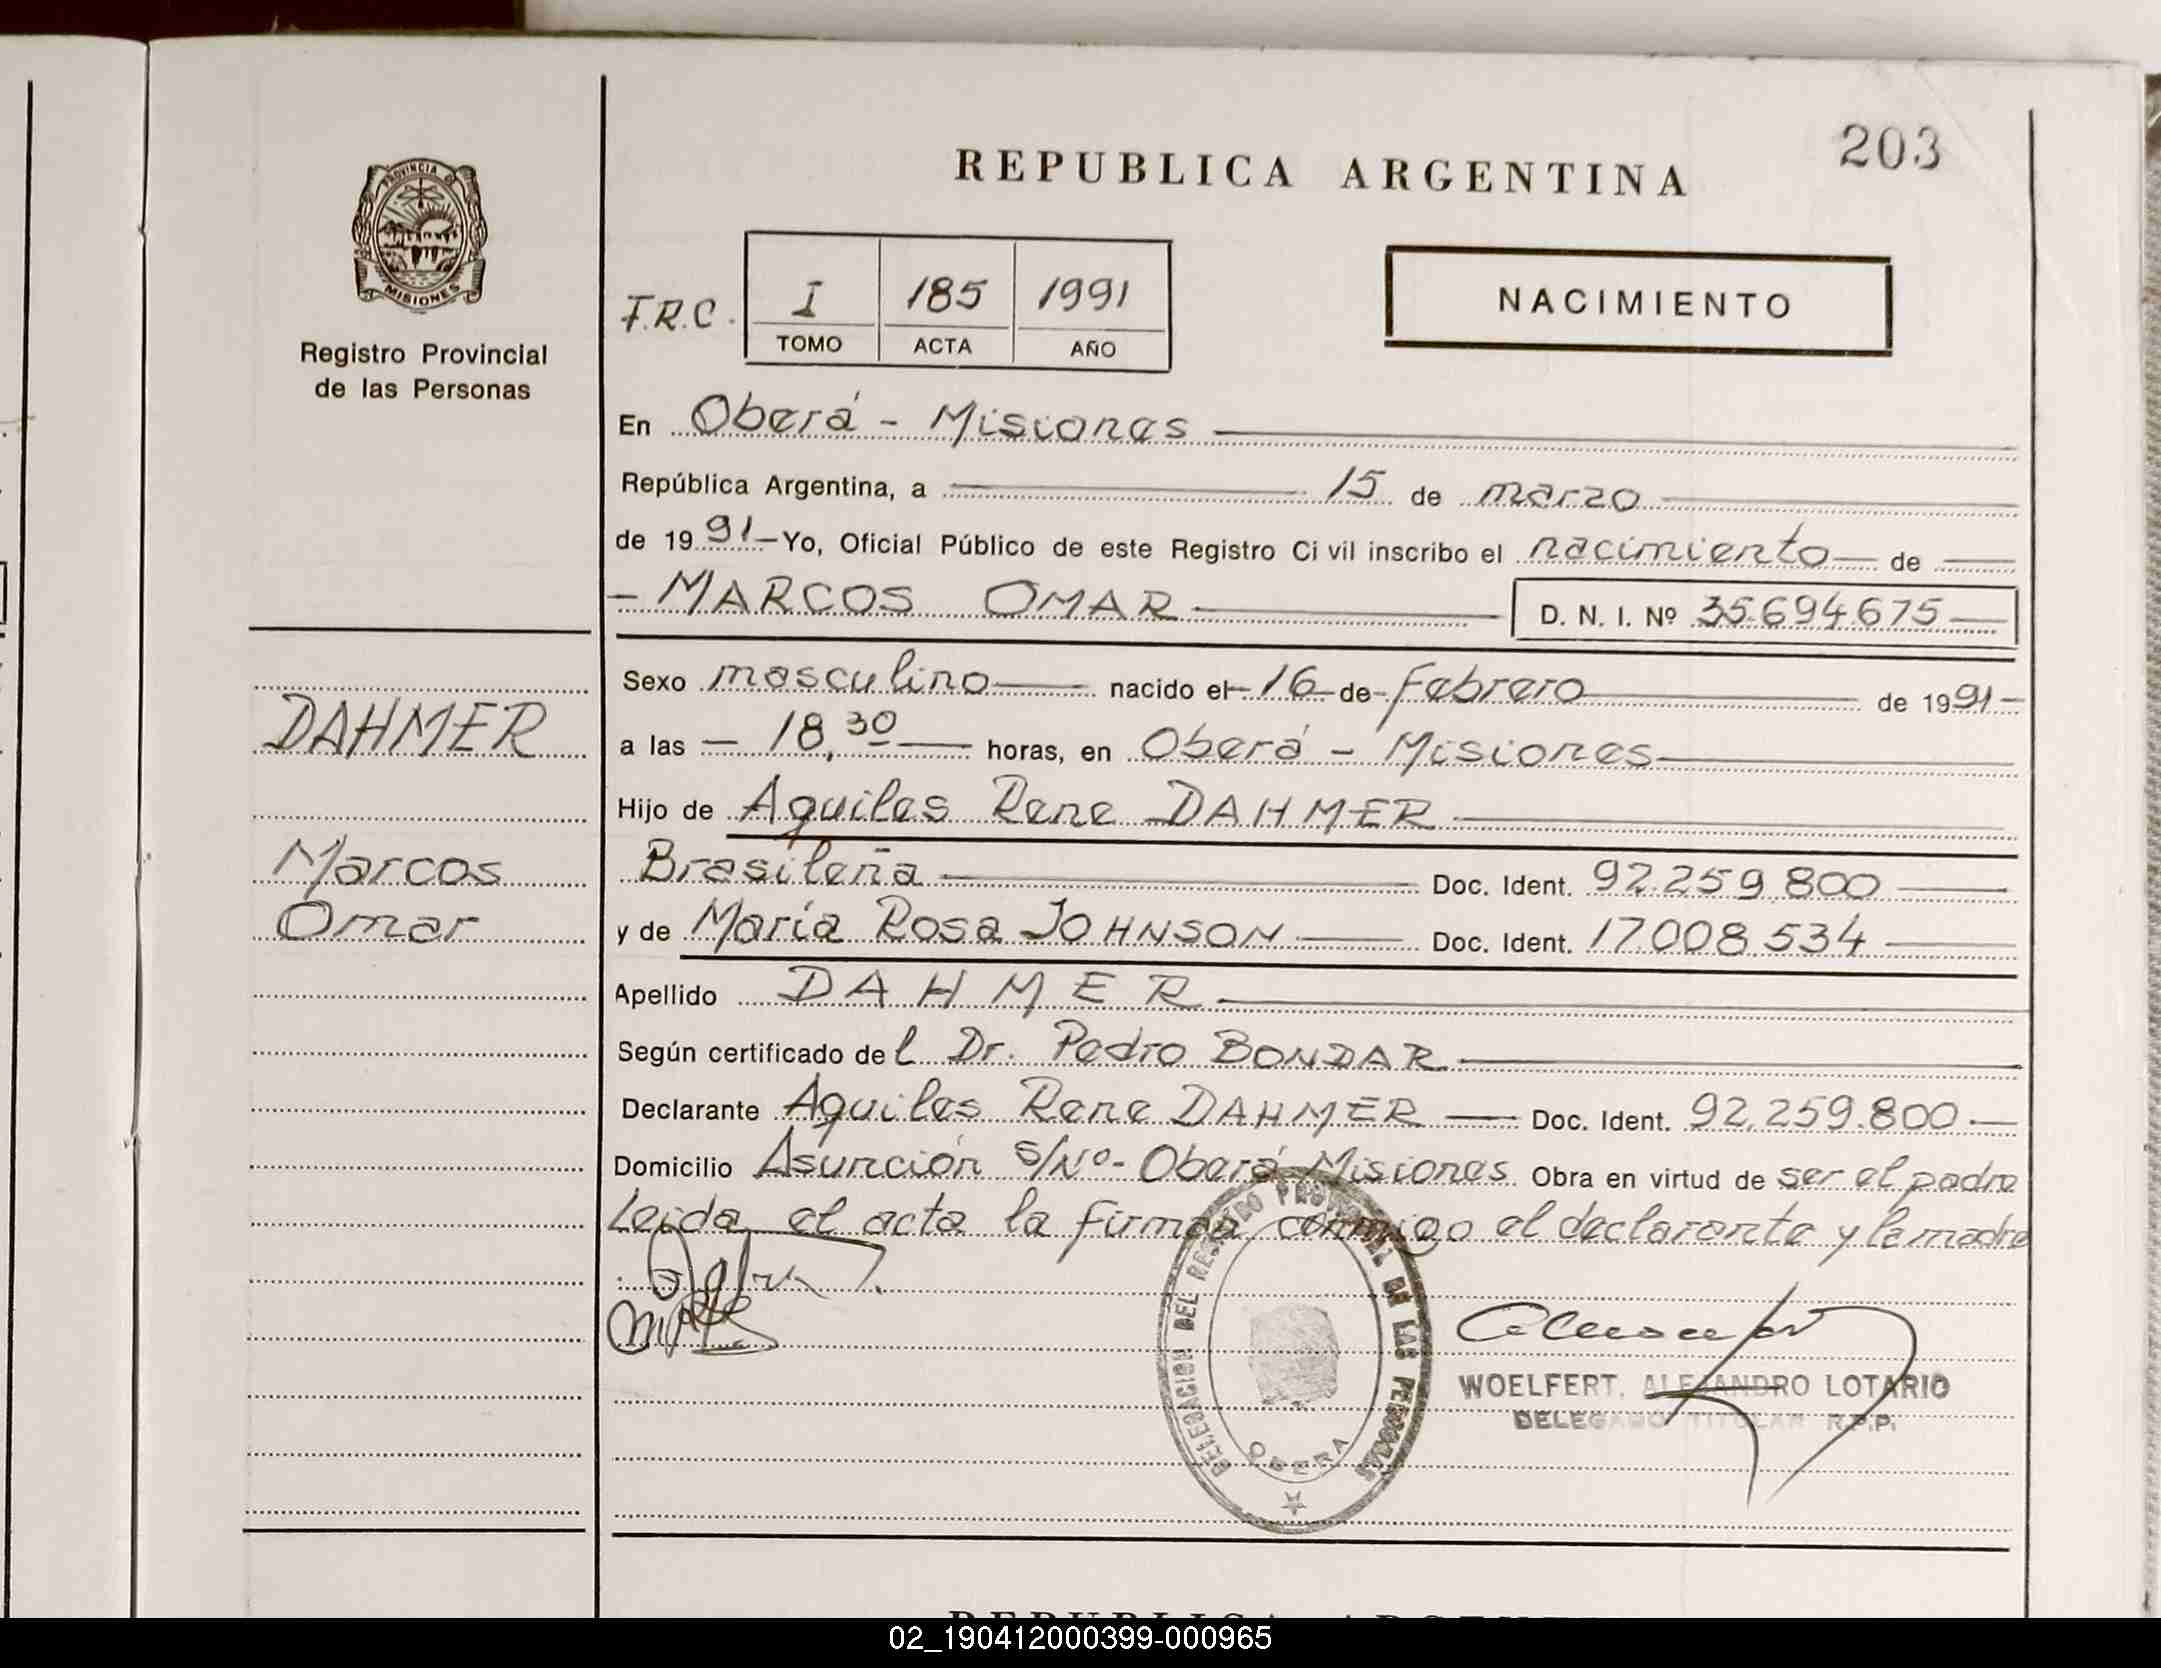 203
REPUBLICA ARGENTINA
PROVINCIA DE
MISIONES
Registro Provincial
de las Personas
F.R.C. I 185 1991
TOMO ACTA AÑO
NACIMIENTO
En Oberá - Misiones
República Argentina, a 15 de marzo
de 1991 - Yo, Oficial Público de este Registro Ci vil inscribo el nacimiento de
- MARCOS OMAR D. N. I. Nº 35.694.675
DAHMER
Marcos
Omar
Sexo masculino nacido el 16 de Febrero de 1991-
a las - 18,30 horas, en Oberá - Misiones
Hijo de Aquiles Rene DAHMER
Brasileña Doc. Ident. 92.259.800
y de María Rosa JOHNSON Doc. Ident. 17.008.534
Apellido DAHMER
Según certificado del Dr. Pedro BONDAR
Declarante Aquiles Rene DAHMER Doc. Ident. 92.259.800
Domicilio Asunción s/Nº- Oberá Misiones Obra en virtud de ser el padre
Leida el acta la firman conmigo el declarante y la madre
DELEGACION DEL REGISTRO PROVINCIAL DE LAS PERSONAS
OBERA
WOELFERT, ALEJANDRO LOTARIO
DELEGADO TITULAR R.P.P.
02_190412000399-000965